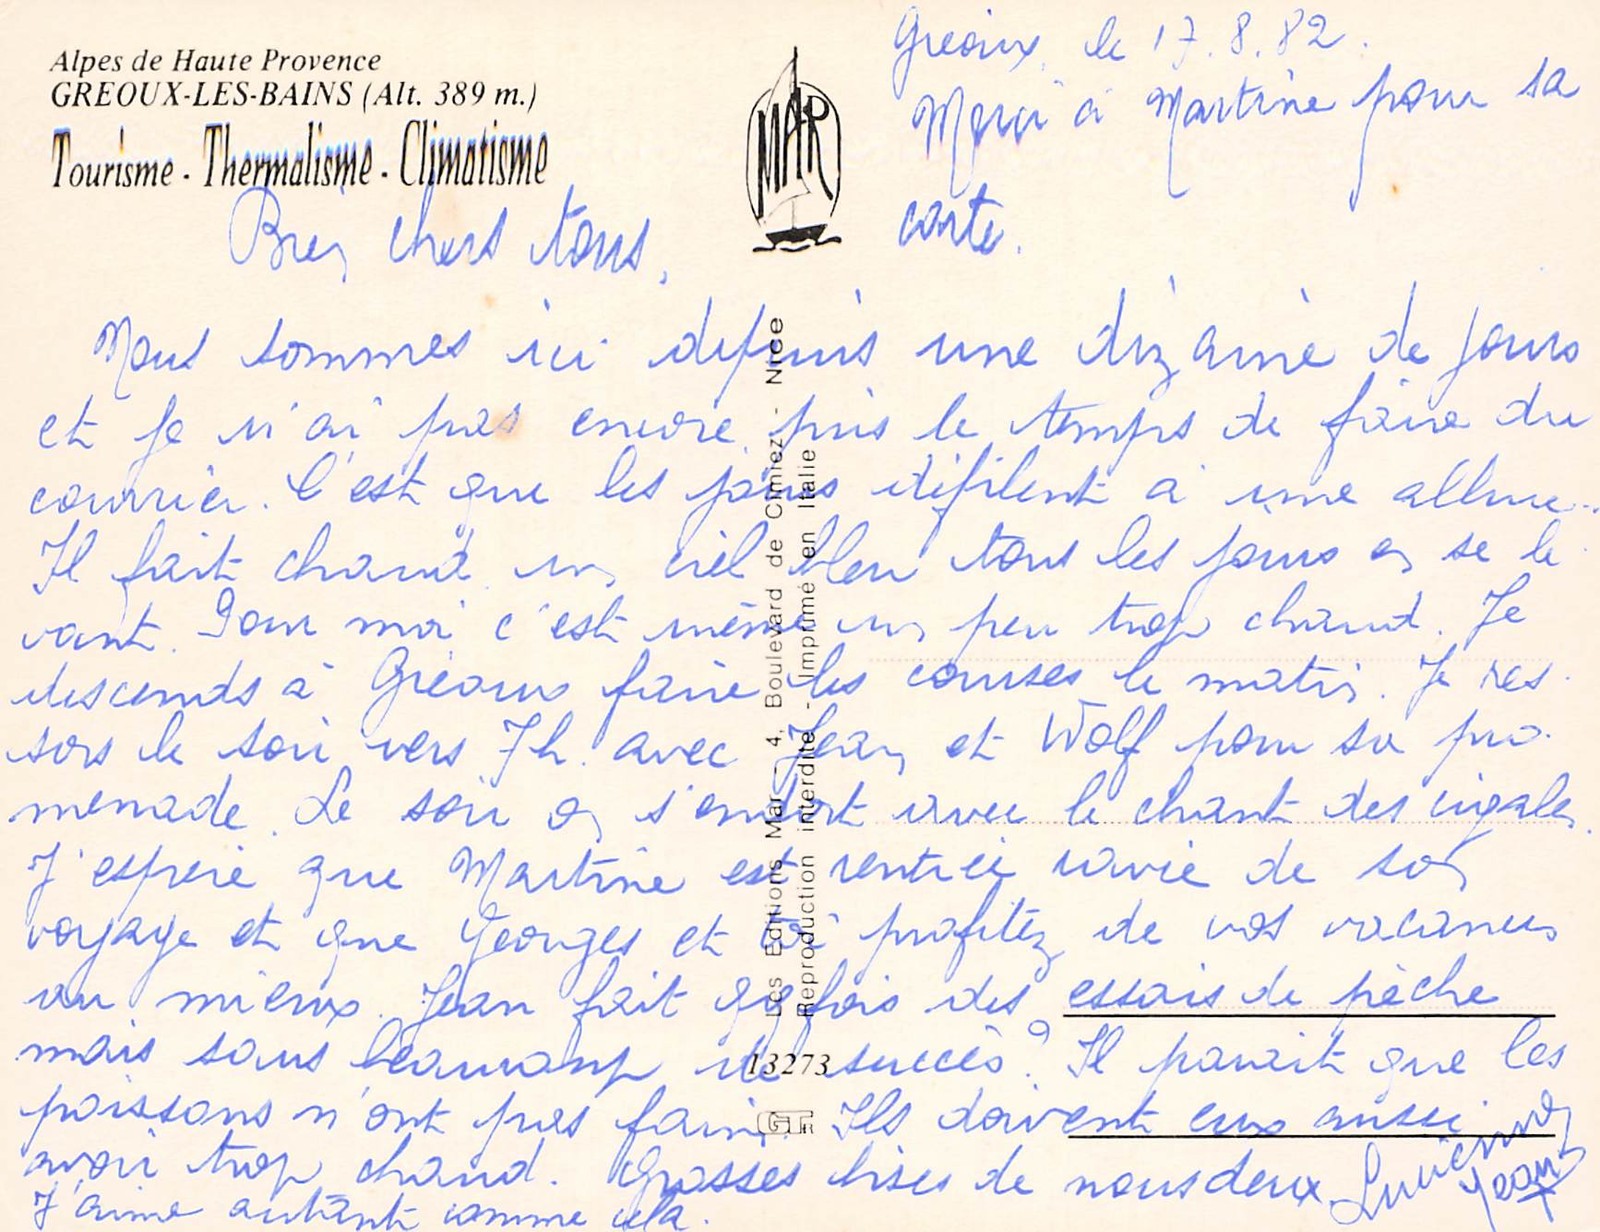 Alpes de Haute Provence
GREOUX-LES-BAINS (Alt. 389 m.)
Tourisme - Thermalisme - Climatisme
MAR
Gréoux, le 17.8.82.
Merci à Martine pour sa
carte.
Bien chers tous,
Nous sommes ici depuis une dizaine de jours
et je n'ai pas encore pris le temps de faire du
courrier. C'est que les jours défilent à une allure...
Il fait chaud un ciel bleu tous les jours en se le
vant. Pour moi c'est même un peu trop chaud. Je
descends à Gréoux faire les courses le matin. Je res-
sors le soir vers 7h. avec Jean et Wolf pour sa pro-
menade. Le soir on s'endort avec le chant des cigales.
J'espère que Martine est rentrée ravie de son
voyage et que Georges et toi profitez de vos vacances
au mieux. Jean fait qq fois des essais de pêche
mais sans beaucoup de succès? Il parait que les
poissons n'ont pas faim. Ils doivent eux aussi
avoir trop chaud. Grosses bises de nous deux Lucienne
Jean
J'aime autant comme cela.
Les Editions Mar - 4, Boulevard de Cimiez - Nice
Reproduction interdite - Imprimé en Italie
13273